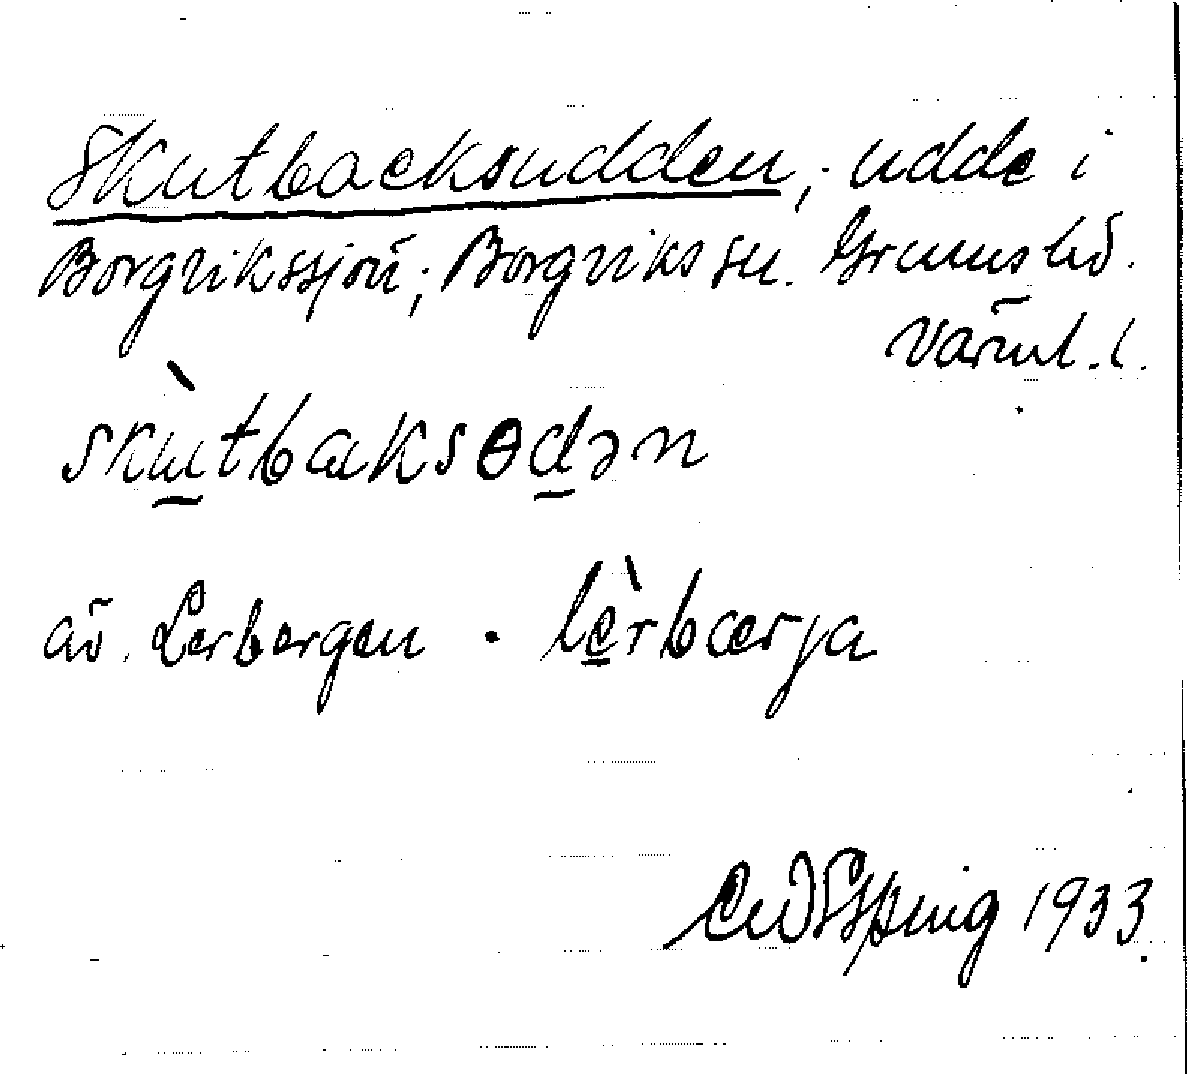 Skutbacksudden, udde i
Borgvikssjön; Borgviks sn. Grums hd.
Värml. l.
skùtbaksɵdən
av. Lerbergen . lèrbærja
1933.